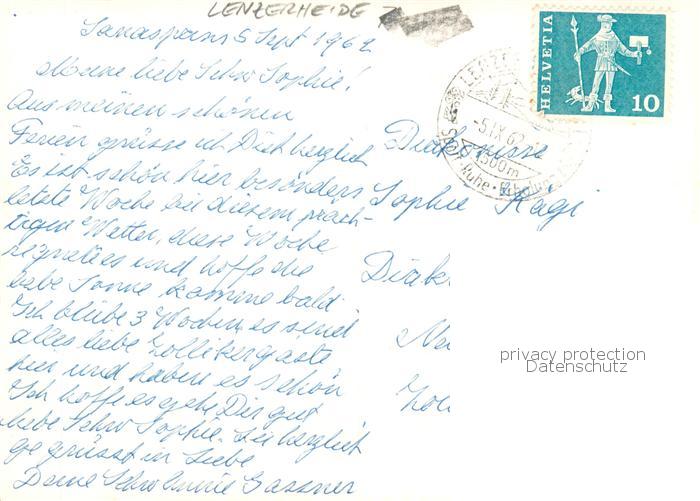 LENZERHEIDE
Sanaspans 5 Sept 1962
Meine liebe Schw Sophie!
Aus meinen schönen
Ferien grüsse ich Dich herzlich
Es ist schön hier besonders
letzte Woche bei diesem präch-
tigen Wetter, diese Woche
regnet es und hoffe die
liebe Sonne komme bald
Ich bleibe 3 Wochen es sind
alles liebe Zollikergäste
hier und haben es schön
Ich hoffe es gehe Dir gut
liebe Schw Sophie. Sei herzlich
gegrüsst in Liebe
Deine Schw Gassner
HELVETIA
10
-5.IX.62
1500m
Diakonisse
Sophie Kägi
Diak
Ne
Zol
privacy protection
Datenschutz